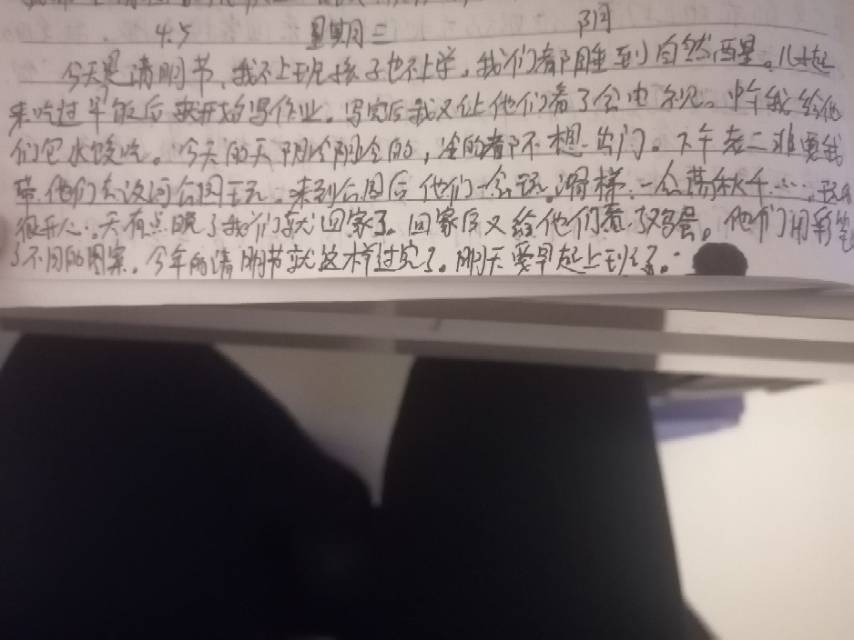 4.5 星期二 阴
今天是清明节,我不上班孩子也不上学,我们都睡到自然醒。儿子起
来吃过早饭后就开始写作业。写完后我又让他们看了会电视。中午我给他
们包水饺吃。今天的天阴冷阴冷的,冷的都不想出门。下午老二非要我
带他们去汶河公园玩。来到公园后他们一会玩滑梯,一会荡秋千……玩的
很开心。天有点晚了我们就回家了。回家后又给他们煮了鸡蛋。他们用彩笔
了不同的图案。今年的清明节就这样过完了。明天要早起上班了。